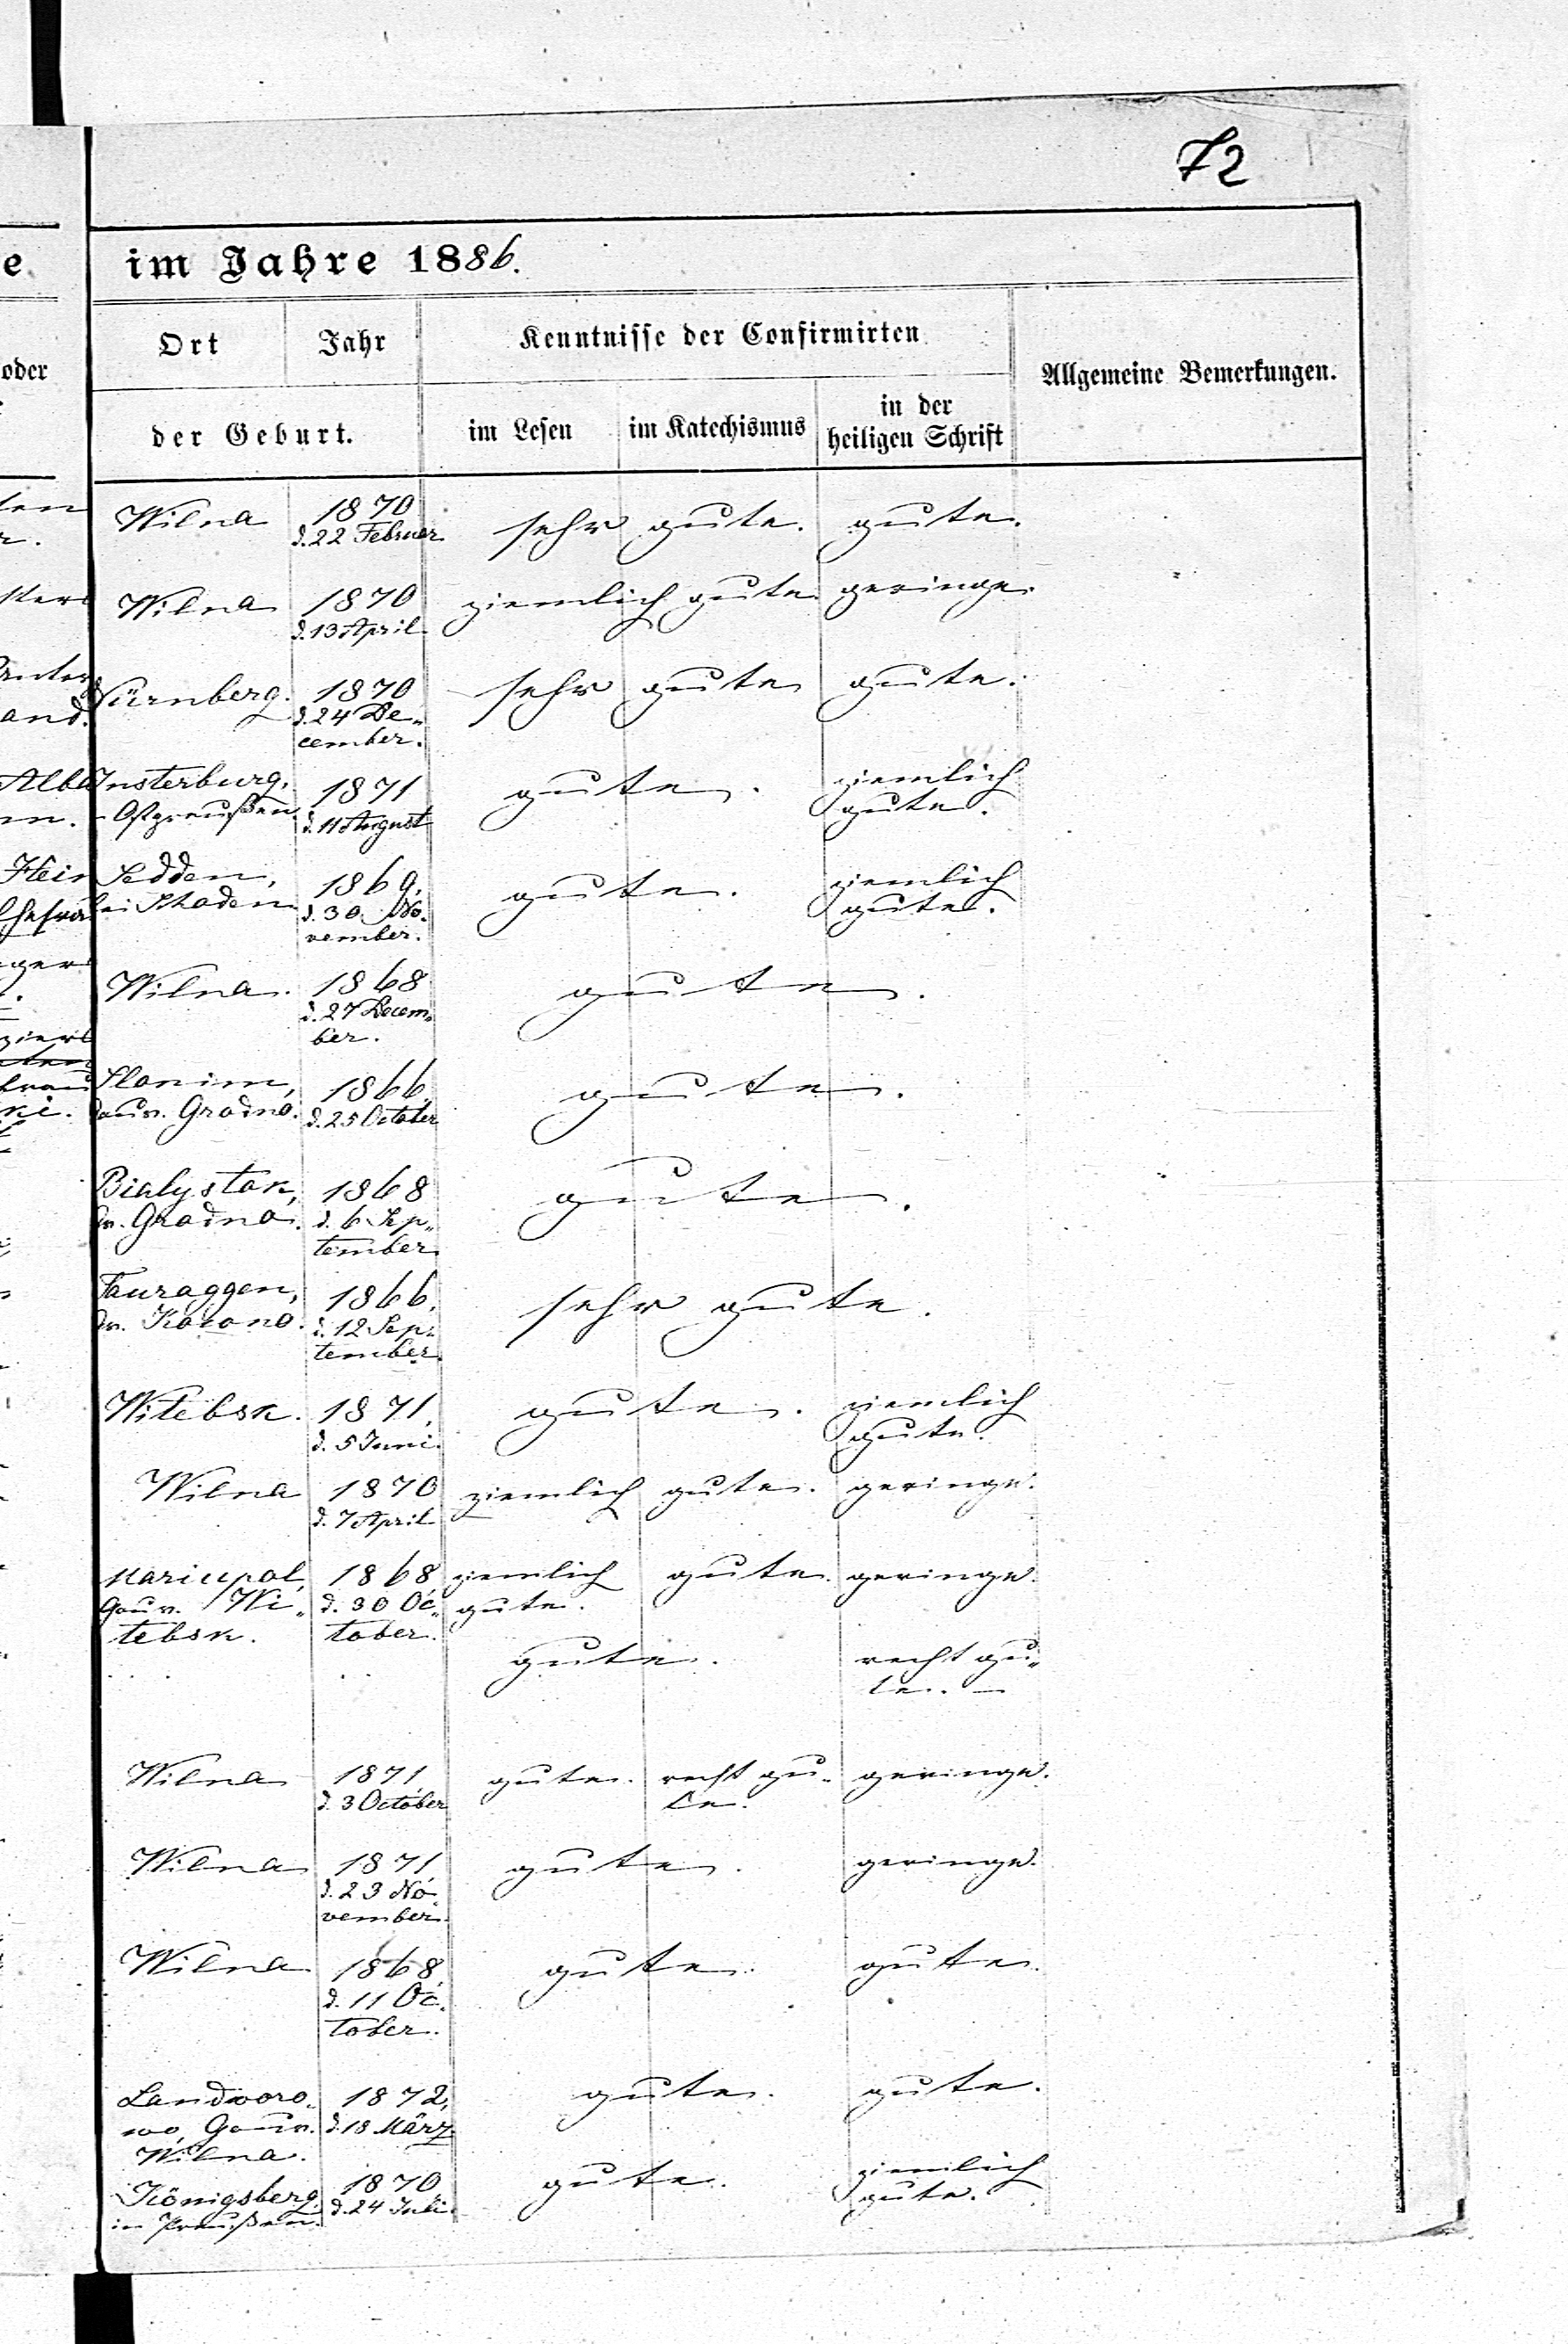 72
e
im Jahre 1886.
oder
Ort
Jahr
der Geburt.
Kenntnisse der Confirmirten
im Lesen
im Katechismus
in der
heiligen Schrift
Allgemeine Bemerkungen.
Wilna 1870 sehr gute. gute.
d. 22 Februar
Wilna 1870 ziemlich gute geringe.
d. 13 April.
Nürnberg. 1870 sehr gute gute.
d. 24 De„
cember.
Insterburg, 1871 gute. ziemlich
Ostpreußen. d. 11 August gute.
Sedden, 1869, gute. ziemlich
bei Skaden d. 30. No„ gute.
vember.
Wilna. 1868 gute.
d. 27 Decem„
ber.
Slonim, 1866 gute.
Gouv. Grodno. d. 25 October
Bialystok, 1868 gute.
Gv. Grodno. d. 6 Sep„
tember.
Tauraggen, 1866, sehr gute.
Gv. Kowno. d. 12 Sep„
tember.
Witebsk. 1871, gute. ziemlich
d. 5 Juni. gute.
Wilna 1870 ziemlich gute. geringe.
d. 7 April
Mariupol, 1868 ziemlich gute. geringe.
Gouv. Wi„ d. 30 Oc„ gute.
tebsk. tober.
gute. recht gu„
te. —
Wilna 1871, gute. recht gu„ geringe.
d. 3 October te.
Wilna 1871 gute. geringe.
d. 23 No„
vember.
Wilna 1868, gute. gute.
d. 11 Oc„
tober.
Landworo„ 1872, gute. gute.
wo, Gouv. d. 18 März
Wilna.
Königsberg, 1870 gute. ziemlich
in Preußen. d. 24 Juli. gute.